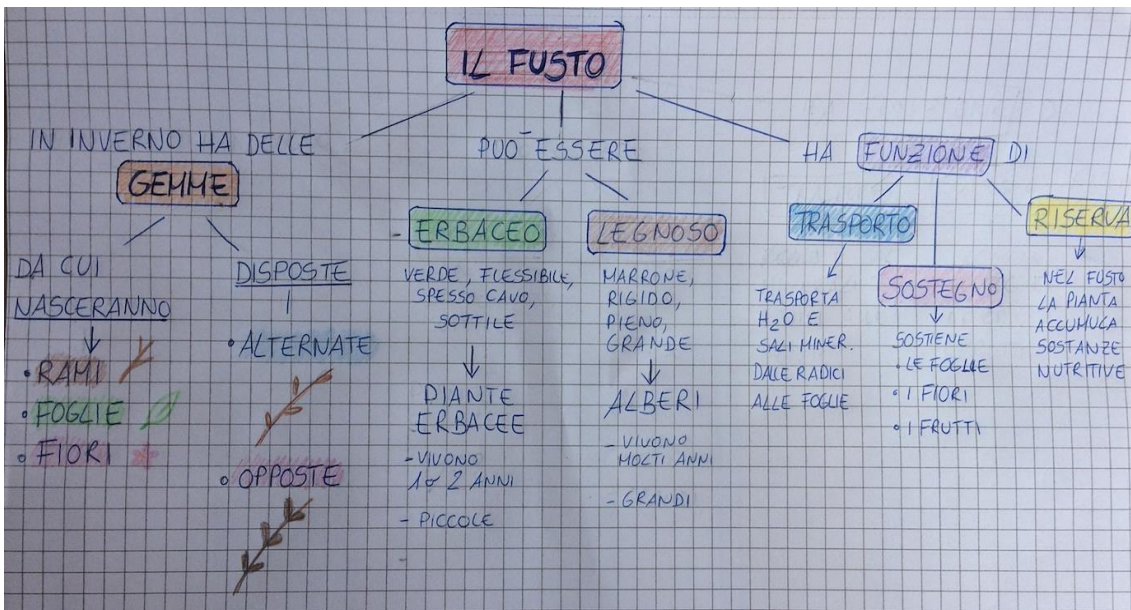 IL FUSTO
IN INVERNO HA DELLE
GEMME
DA CUI
NASCERANNO
• RAMI
• FOGLIE
• FIORI
DISPOSTE
• ALTERNATE
• OPPOSTE
PUÒ ESSERE
- ERBACEO
VERDE, FLESSIBILE,
SPESSO CAVO,
SOTTILE
PIANTE
ERBACEE
- VIVONO
1 o 2 ANNI
- PICCOLE
LEGNOSO
MARRONE,
RIGIDO,
PIENO,
GRANDE
ALBERI
- VIVONO
MOLTI ANNI
- GRANDI
HA FUNZIONE DI
TRASPORTO
TRASPORTA
H₂O E
SALI MINER.
DALE RADICI
ALLE FOGLIE
SOSTEGNO
SOSTIENE
• LE FOGLIE
• I FIORI
• I FRUTTI
RISERVA
NEL FUSTO
LA PIANTA
ACCUMULA
SOSTANZE
NUTRITIVE